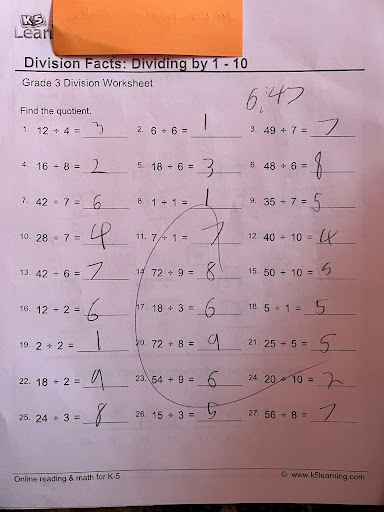 K5
Lear
Division Facts: Dividing by 1 - 10
Grade 3 Division Worksheet
6:47
Find the quotient.
1. 12 ÷ 4 = 3 2. 6 ÷ 6 = 1 3. 49 ÷ 7 = 7
4. 16 ÷ 8 = 2 5. 18 ÷ 6 = 3 6. 48 ÷ 6 = 8
7. 42 ÷ 7 = 6 8. 1 ÷ 1 = 1 9. 35 ÷ 7 = 5
10. 28 ÷ 7 = 4 11. 7 ÷ 1 = 7 12. 40 ÷ 10 = 4
13. 42 ÷ 6 = 7 14. 72 ÷ 9 = 8 15. 50 ÷ 10 = 5
16. 12 ÷ 2 = 6 17. 18 ÷ 3 = 6 18. 5 ÷ 1 = 5
19. 2 ÷ 2 = 1 20. 72 ÷ 8 = 9 21. 25 ÷ 5 = 5
22. 18 ÷ 2 = 9 23. 54 ÷ 9 = 6 24. 20 ÷ 10 = 2
25. 24 ÷ 3 = 8 26. 15 ÷ 3 = 5 27. 56 ÷ 8 = 7
Online reading & math for K-5 © www.k5learning.com